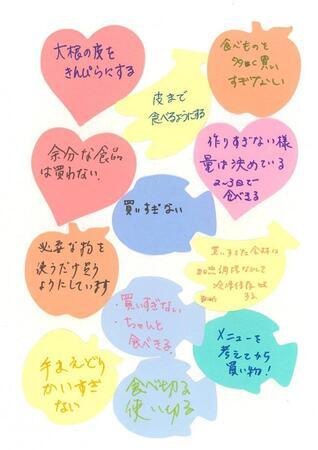 大根の皮を
きんぴらにする
食べものを
多く買い
すぎない
皮まで
食べるようにする
余分な食品
は買わない。
作りすぎない様
量は決めている
2~3日で
食べきる
買いすぎない
必要な物を
使うだけ買う
ようにしています
買いすぎた食材は
冷凍保存
する
・買いすぎない
・ちゃんと
食べきる。
メニューを
考えてから
買い物!
手まえどり
かいすぎ
ない
食べ切る
使い切る